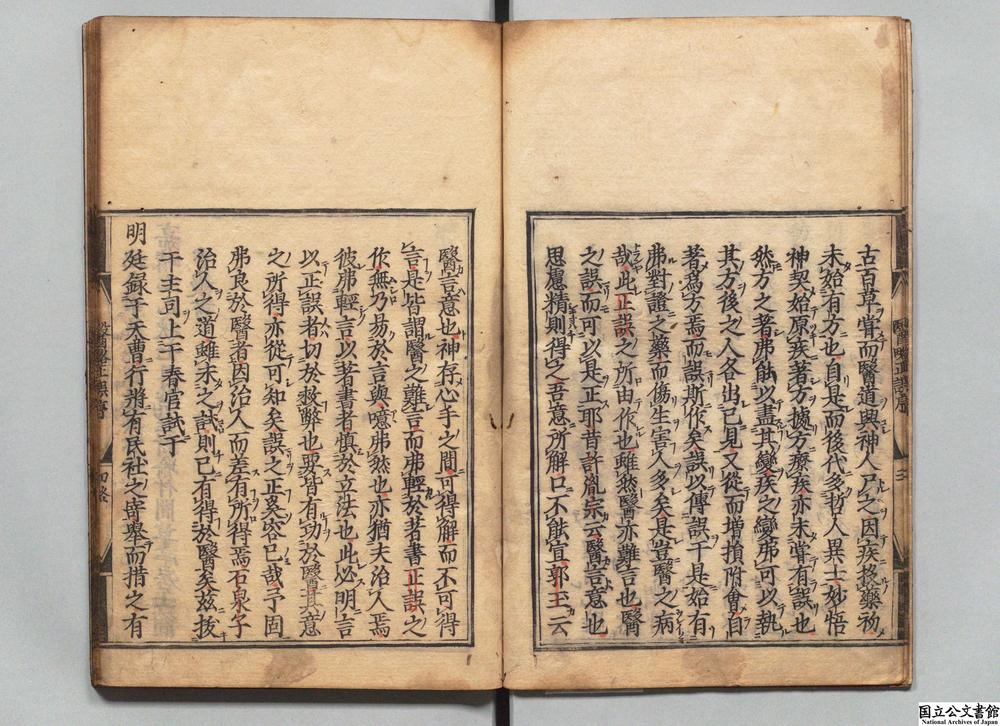 古百草嘗而醫道興神人尸之因疾投藥初
未始有方也自是而後代多哲人異士妙悟
神契始原疾著方據方療疾亦未嘗有誤也
然方之著弗能以盡其變疾之變弗可以執
其方後之人各出己見又從而增損附會自
著爲方焉而誤斯作矣誤以傳誤于是始有
弗對證之藥而傷生害人多矣是豈醫之病
哉此正誤之所由作也雖然醫亦難言也醫
之誤而可以是正耶昔許胤宗云醫言意也
思慮精則得之言意所解口不能宣郭玉云
醫言意也神存心手之間可得解而不可得
言是皆謂醫之難言而弗輕於著書正誤之
作無乃易於言與噫弗然也亦猶夫治人焉
彼弗輕言以著書者慎於立法也此必明言
以正誤者切於救弊也要皆有功於醫其意
之所得亦從可知矣誤之正奚容已哉予固
弗良於醫者因治人而差有所得焉石泉子
治人之道雖未之試則已有得於醫矣茲拔
于主司上于春官試于
明廷錄于天曹行將有民社之寄舉而措之有
醫略正誤序
三
國立公文書館
National Archives of Japan